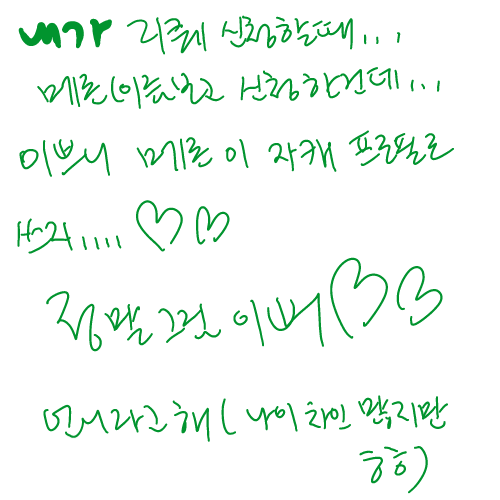 내가 리퀘 신청할때...
메론(이름)보고 신청한건데...
이쁘니 메론이 자캐 프로필로
쓰자.... ♡♡
정말 그런 이뻐♡♡
언니라고해( 나이 차인 많지만
ㅎㅎ)